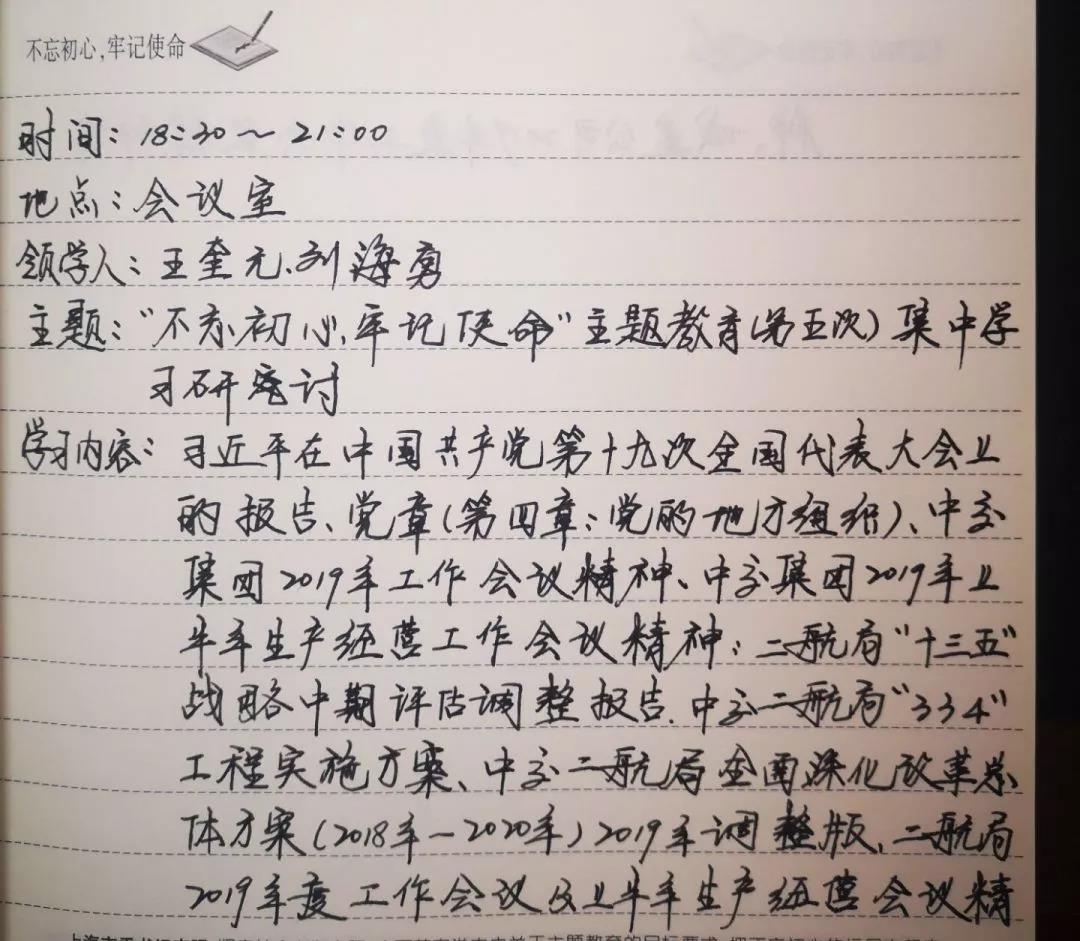 不忘初心,牢记使命
时间：18:30～21:00
地点：会议室
领学人：王奎元、刘海勇
主题："不忘初心、牢记使命"主题教育(第五次)集中学
习研究讨
学习内容：习近平在中国共产党第十九次全国代表大会上
的报告、党章(第四章：党的地方组织)、中交
集团2019年工作会议精神、中交集团2019年上
半年生产经营工作会议精神；二航局"十三五"
战略中期评估调整报告、中交二航局"334"
工程实施方案、中交二航局全面深化改革总
体方案(2018年—2020年)2019年调整版、二航局
2019年度工作会议及上半年生产经营会议精